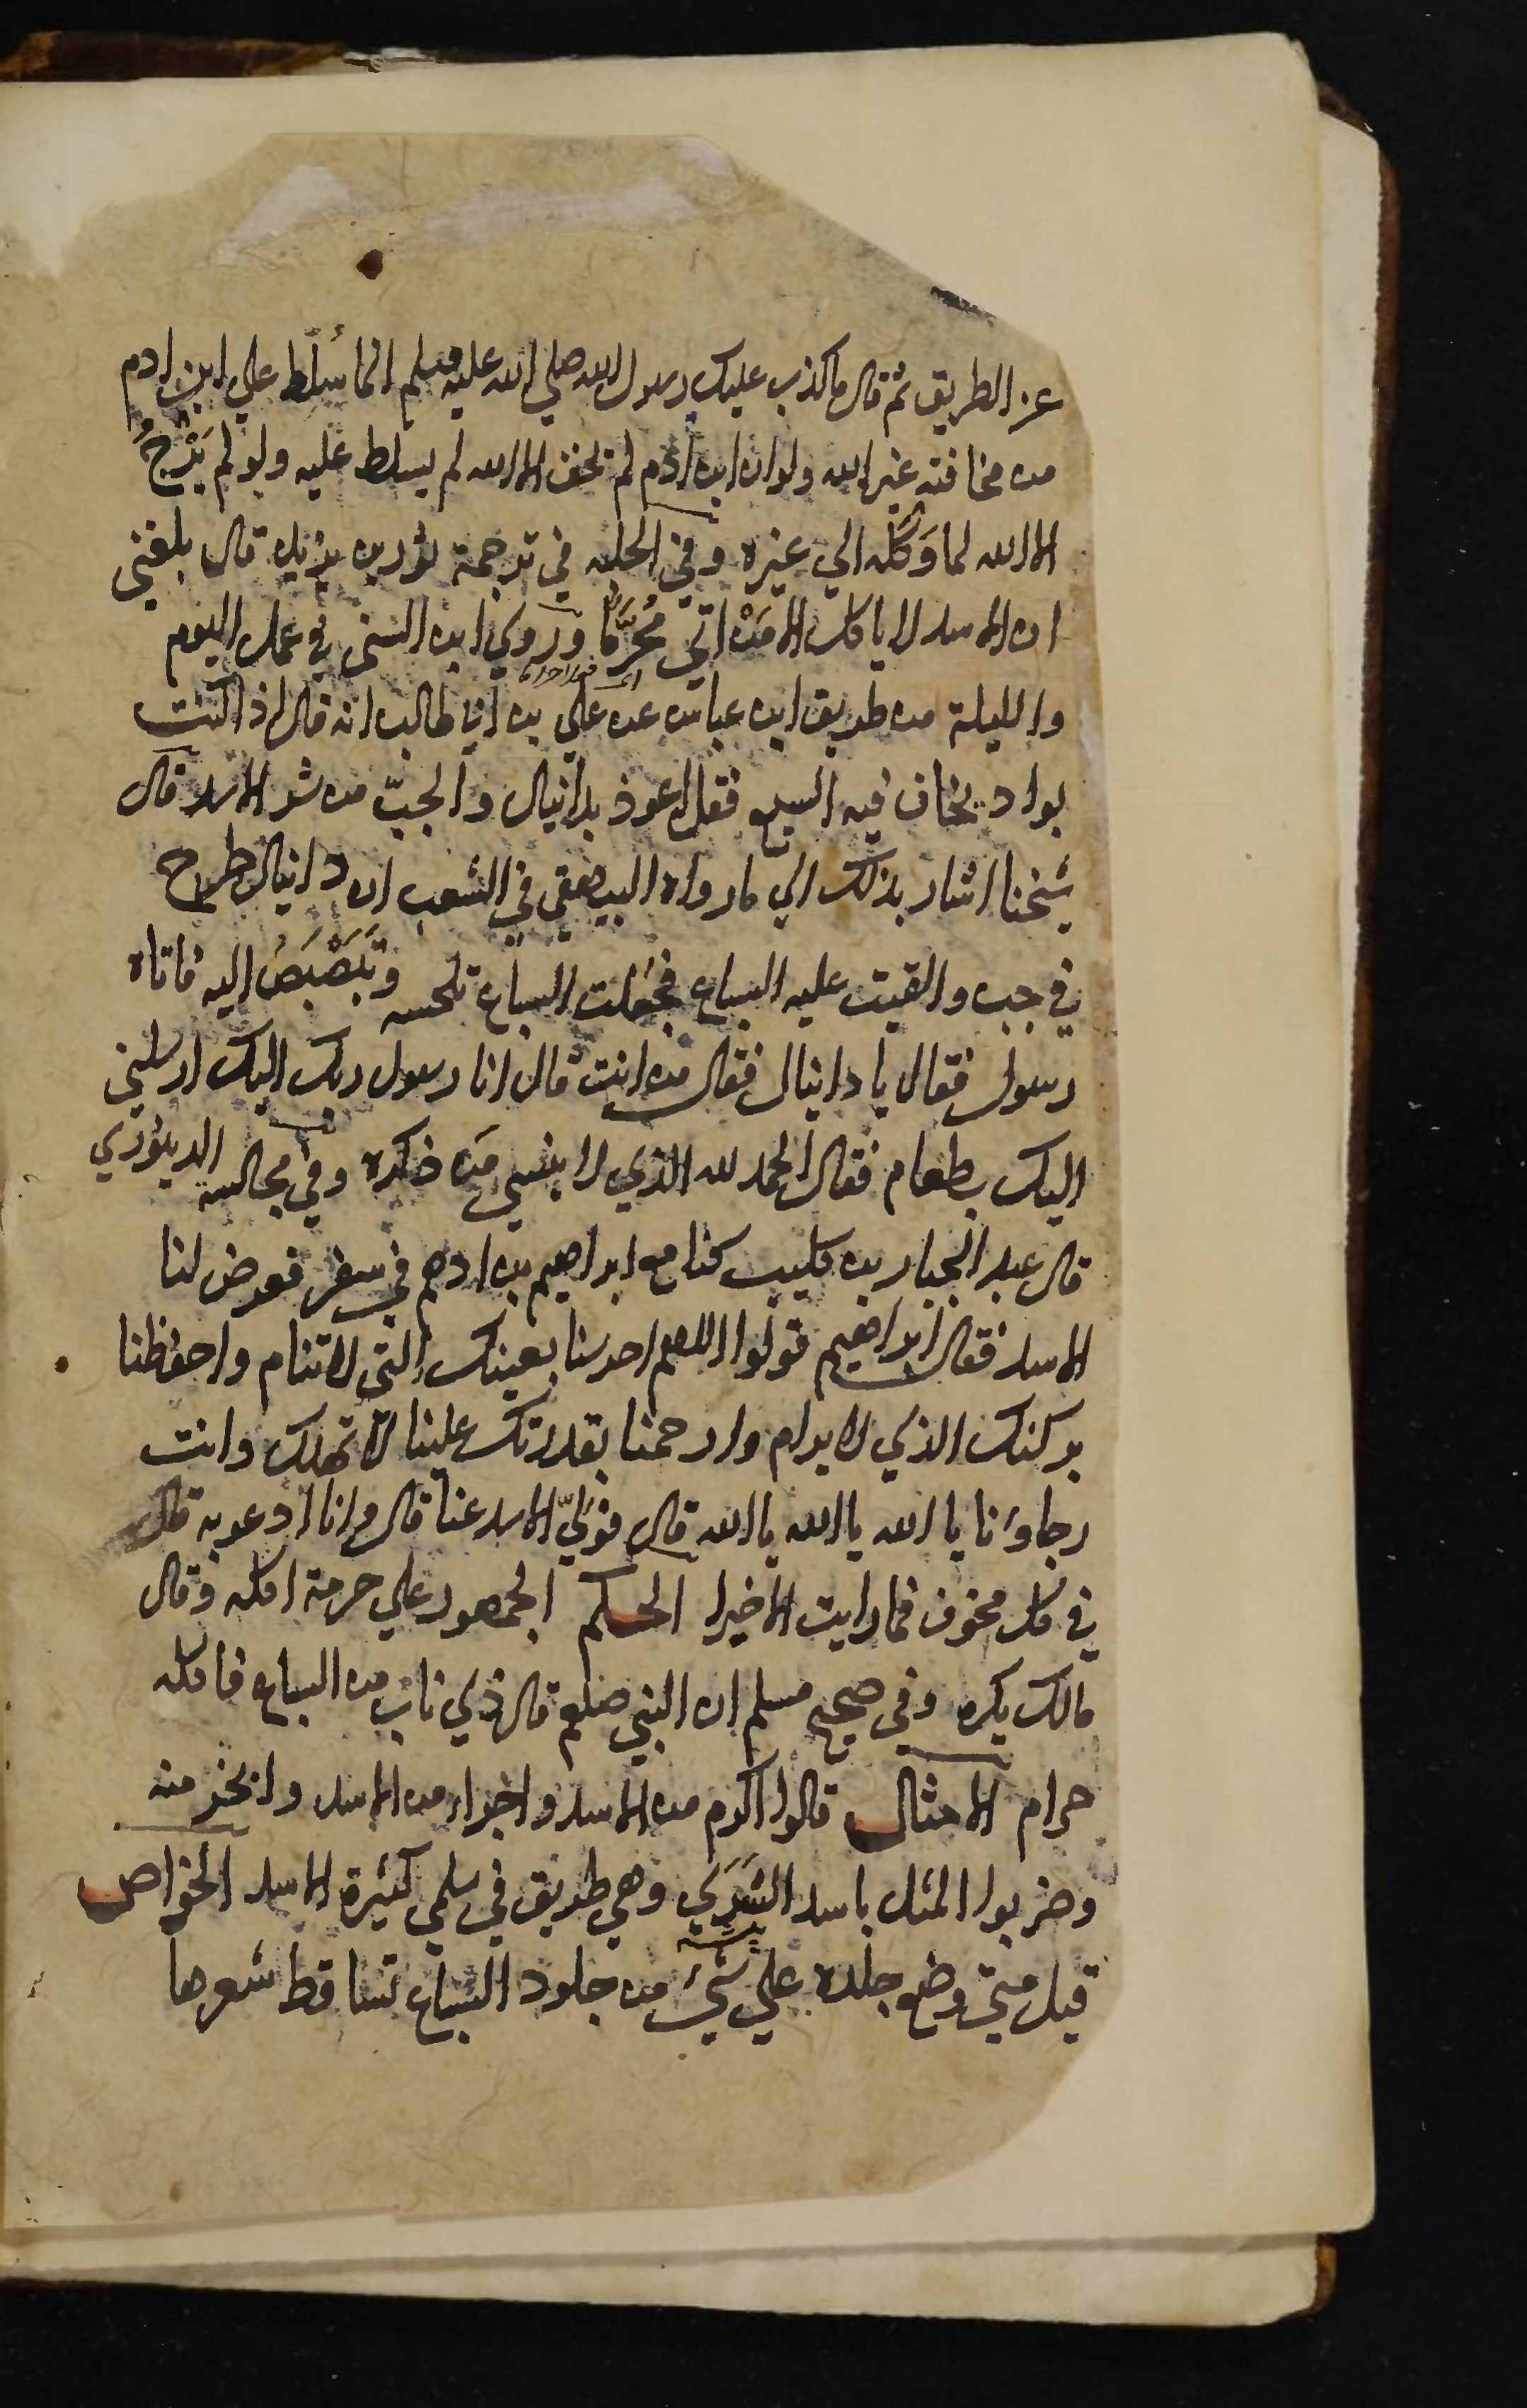 عن الطريق ثم قال ما كذب عليك رسول الله صلي الله عليه وسلم انما سُلّط علي ابن ادم
من مخافته غير الله ولو ان ابن ادم لم يخف الا الله لم يسلط عليه ولو لم يَرْجُ
الا الله لما وَكَله الي غيره وفي الحليه في ترجمة ثور بن يزيد قال بلغني
ان الاسد لا ياكل الا مَنْ اتي مُحَرَّمًا وروي ابن السني في عمل اليوم
والليلة من طريق ابن عباس عن علي بن ابي طالب انه قال اذا كنت
بواد يخاف فيه السبع فقل اعوذ بدانيال والجبّ من شر الاسد قال
شيخنا اشار بذلك الي ما رواه البيهقي في الشعب ان دانيال طرح
في جب والقيت عليه السباع فجعلت السباع تلحسه وتَبَصْبَصُ اليه فاتاه
رسول فقال يا دانيال فقال من انت قال انا رسول ربك اليك ارسلني
اليك بطعام فقال الحمد لله الذي لا ينسي مَن ذكره وفي مجالسة الدينوري
قال عبد الجبار بن كليب كنا مع ابراهيم بن ادهم في سفر فعرض لنا
الاسد فقال ابراهيم قولوا اللهم احرسنا بعينك التي لا تنام واحفظنا
بركنك الذي لا يرام وارحمنا بقدرتك علينا لا نهلك وانت
رجاؤنا يا الله يا الله يا الله قال فولّي الاسد عنا قال وانا ادعو به قال
في كل مخوف فما رايت الا خيرا الحكم الجمهور علي حرمة اكله وقال
مالك يكره وفي صحيح مسلم ان النبي صلعم قال ذي ناب من السباع فاكله
حرام الامثال قالوا اكرم من الاسد واجراء من الاسد وابخر منه
وضربوا المثل باسد الشَرَي وهي طريق في سلمي كثيرة الاسد الخواص
قيل متي وضع جلده علي شئ من جلود السباع تساقط شعرها